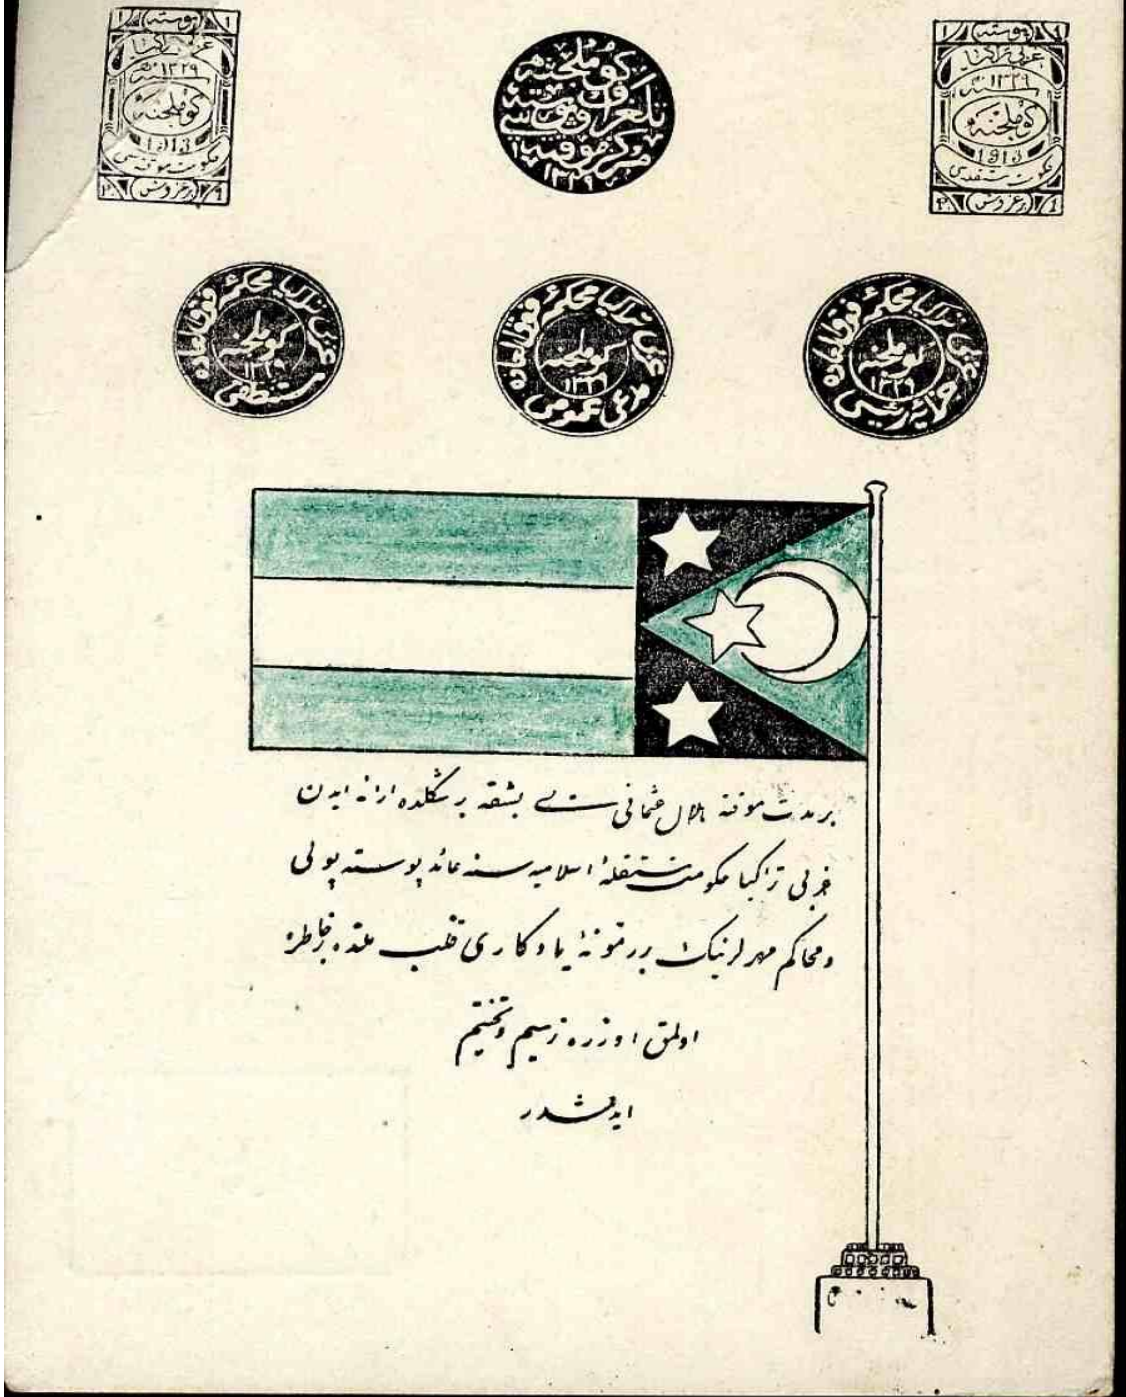 پوسته
غربی تراكیا
سنه ١٣٢٩
كوملجنه
1913
حكومت موقته سی
بر غروش
كوملجنه
تلغراف و پوسته
مركز موقتیسی
١٣٢٩
١ پوسته ١
غربی تراكیا
سنه ١٣٢٩
كوملجنه
1913
حكومت مستقله سی
بر غروش
غربی تراكیا محكمهٔ فوق العاده
كوملجنه
١٣٢٩
مستنطقی
غربی تراكیا محكمهٔ فوق العاده
كوملجنه
١٣٢٩
مدعی عمومی
غربی تراكیا محكمهٔ فوق العاده
كوملجنه
١٣٢٩
جزائیه رئیسی
بر مدت موقته هلال عثمانی یی بشقه بر شكلده ارائه ایدن
غربی تراكیا حكومت مستقلهٔ اسلامیه سنه عائد پوسته پولی
و محاكم مهرلرینك بر نمونهٔ یادكاری قلب ملتده بر خاطره
اولمق اوزره ترسیم و تختیم
ایدلمشدر